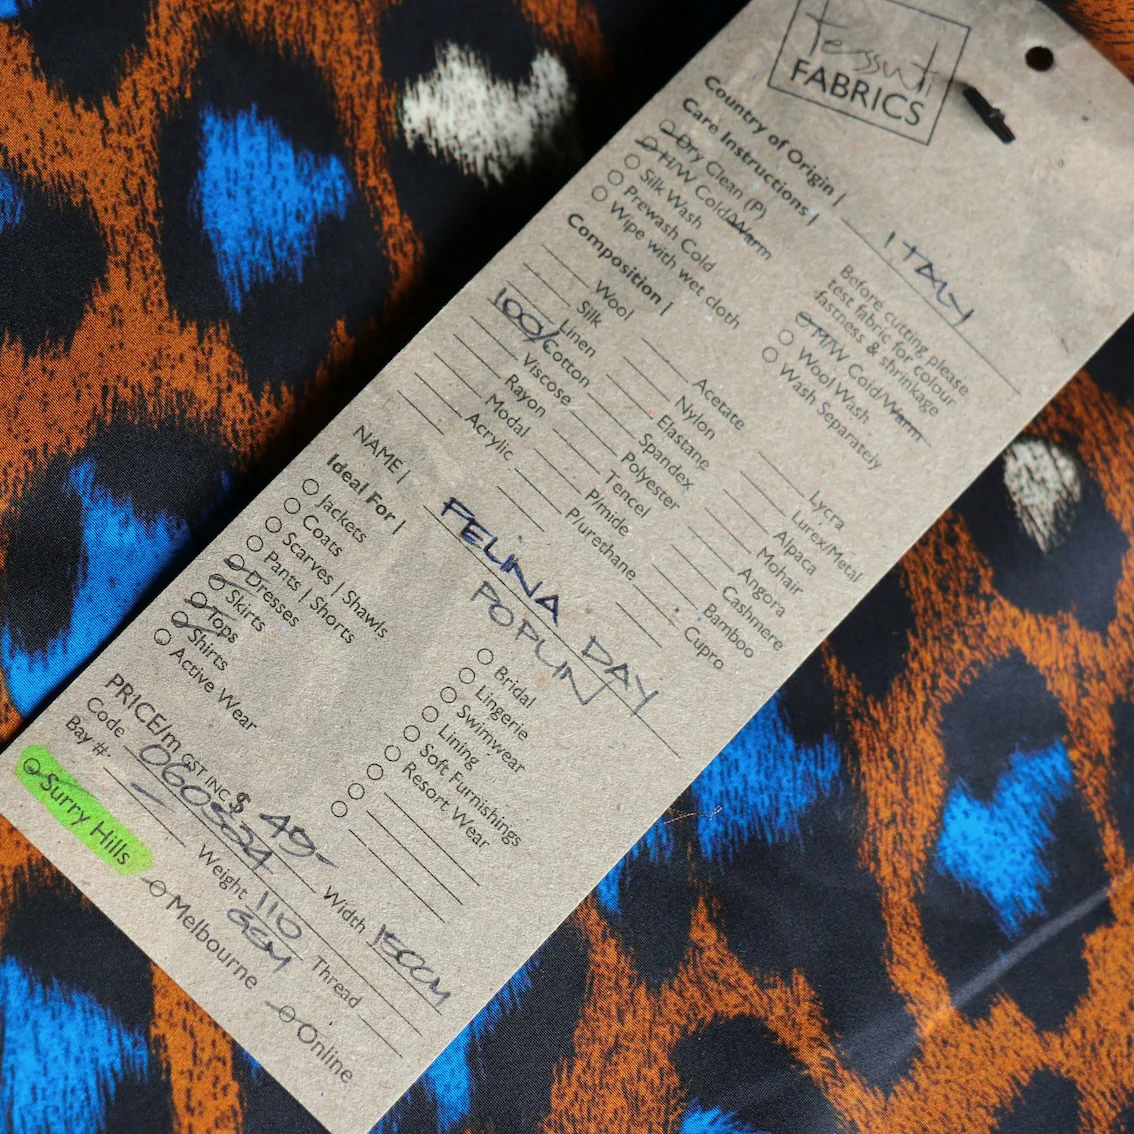 Tessuti
FABRICS
Country of Origin | ITALY
Care Instructions |
Dry Clean (P)
H/W Cold/Warm
Silk Wash
Prewash Cold
Wipe with wet cloth
Before cutting please
test fabric for colour
fastness & shrinkage
M/W Cold/Warm
Wool Wash
Wash Separately
Composition |
Wool
Silk
Linen
100/ Cotton
Viscose
Rayon
Modal
Acrylic
Acetate
Nylon
Elastane
Spandex
Polyester
Tencel
P/mide
P/urethane
Lycra
Lurex/Metal
Alpaca
Mohair
Angora
Cashmere
Bamboo
Cupro
NAME | FELINA DAY
POPLIN
Ideal For |
Jackets
Coats
Scarves | Shawls
Pants | Shorts
Dresses
Skirts
Tops
Shirts
Active Wear
Bridal
Lingerie
Swimwear
Lining
Soft Furnishings
Resort Wear
PRICE/m GST INC $ 49-
Code 060324
Width 150CM
Bay # -
Weight 110
GSM
Thread
Surry Hills
Melbourne
Online